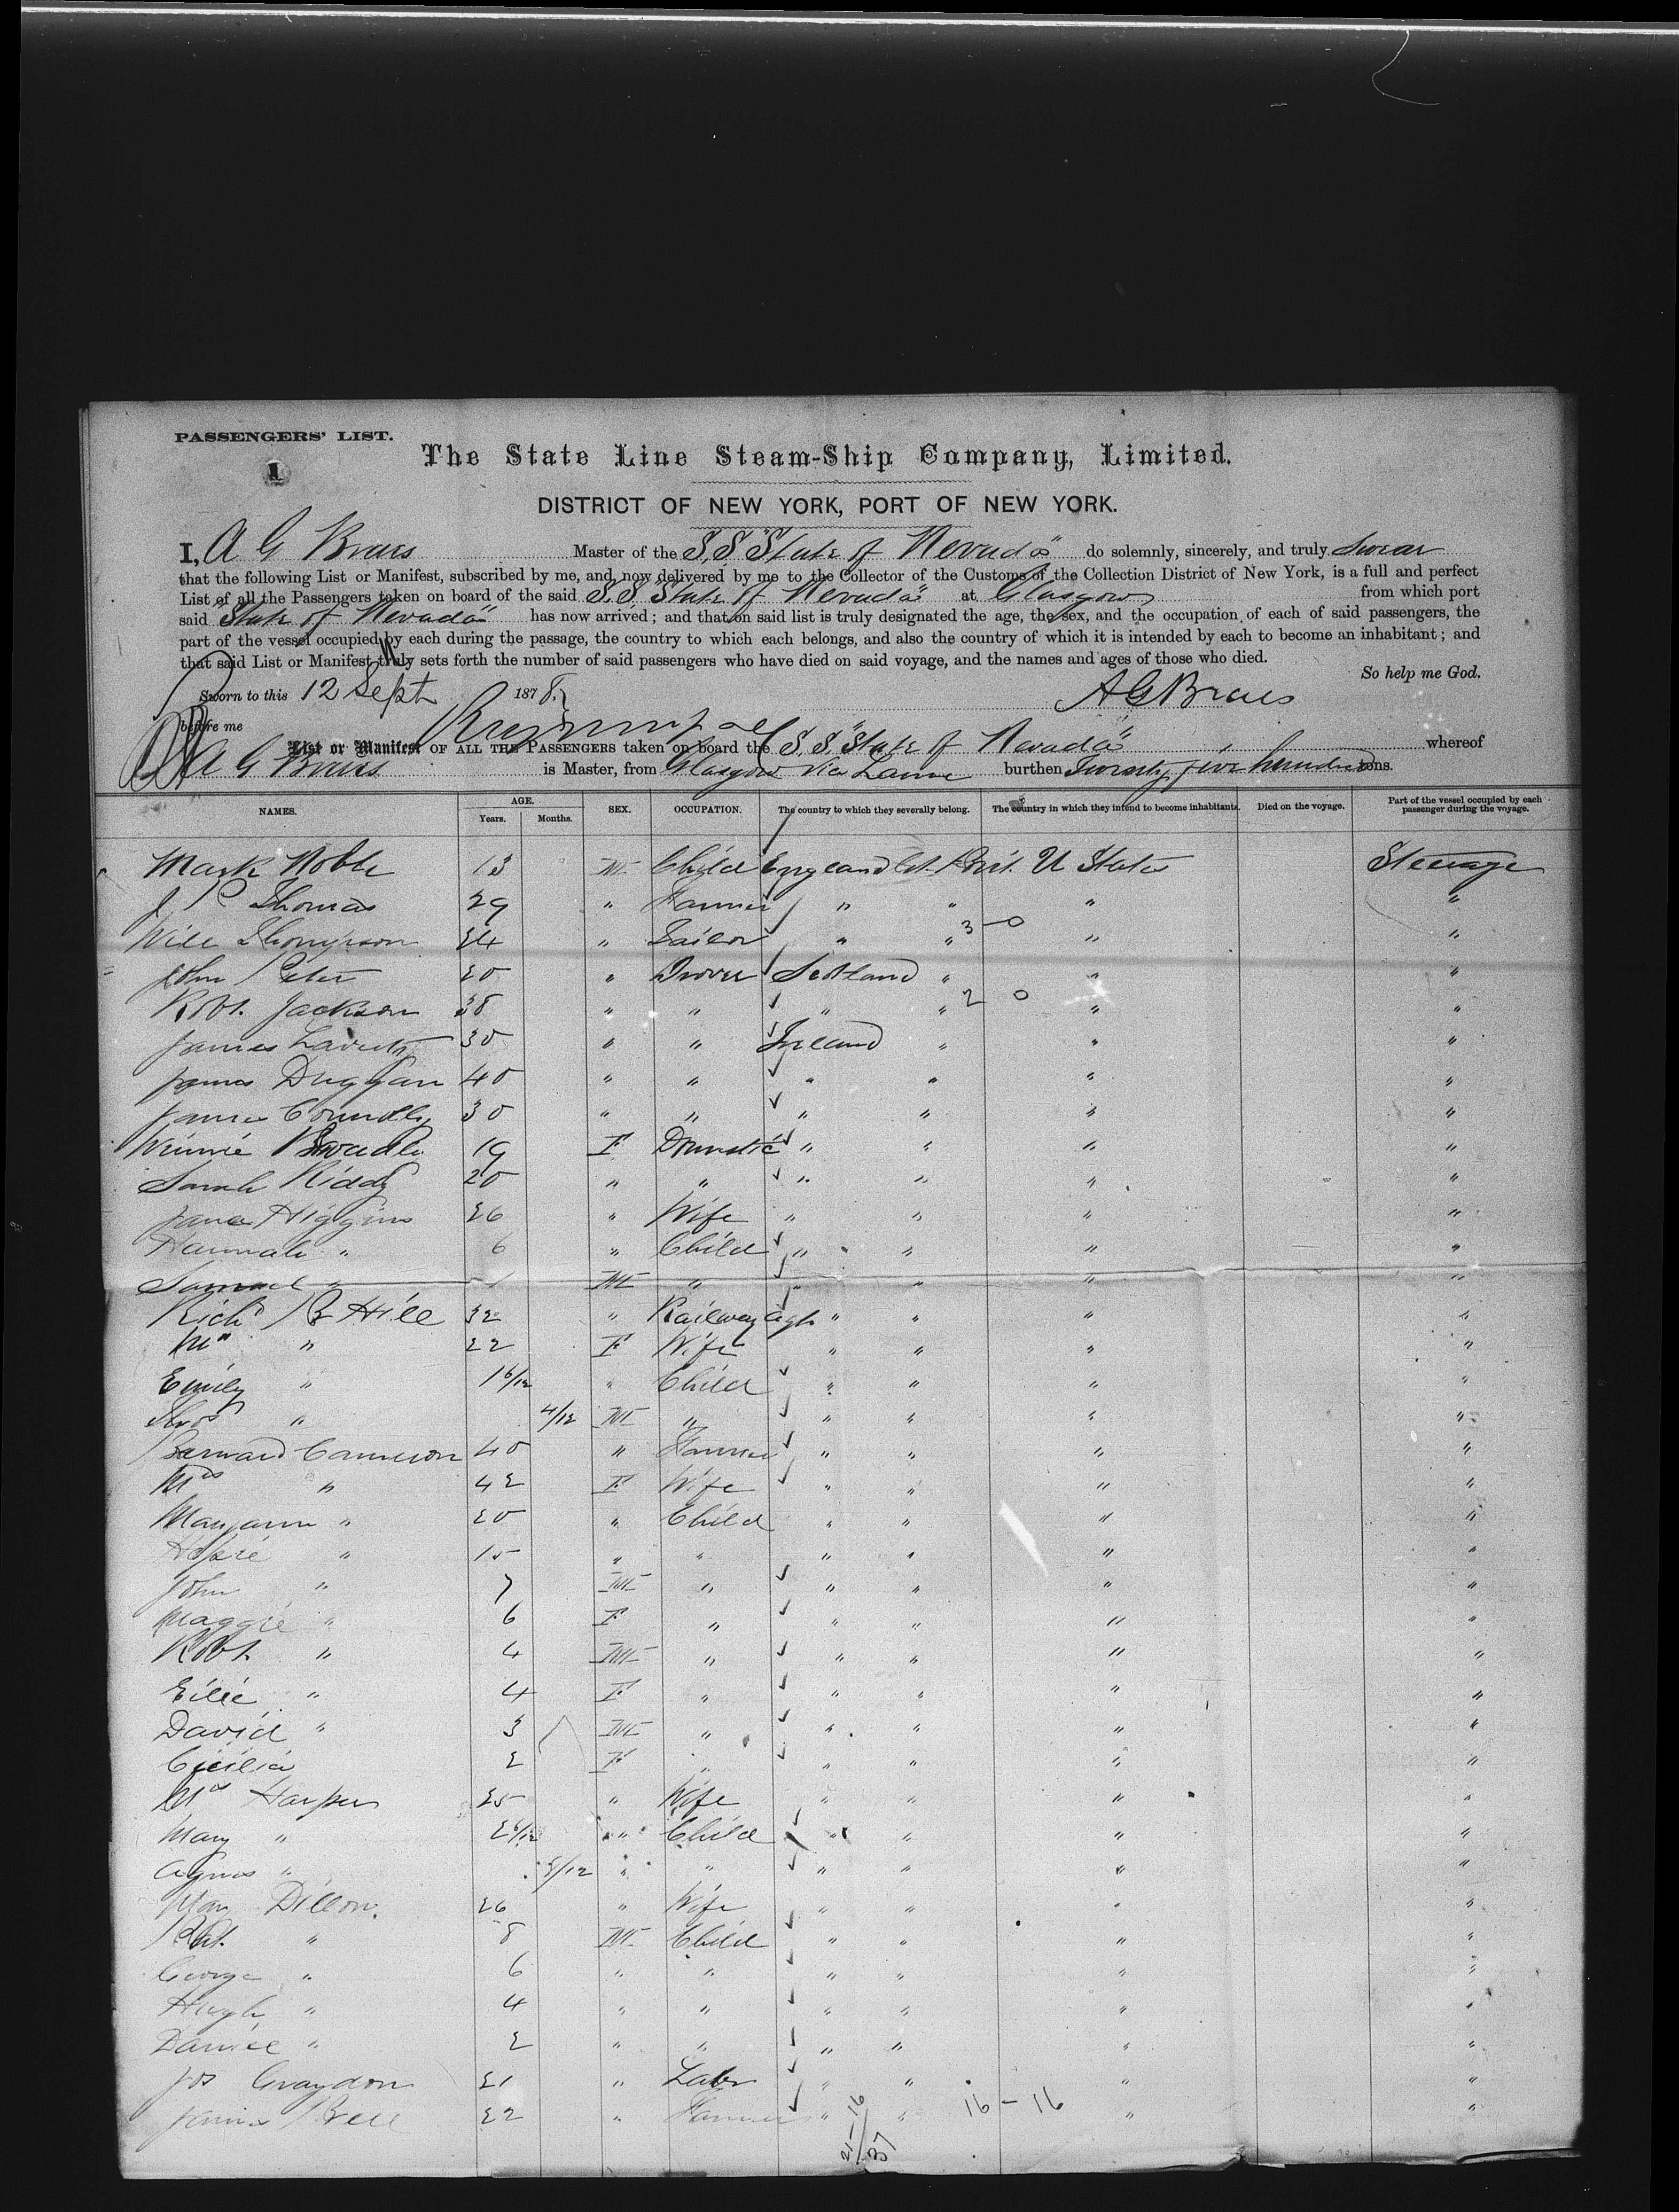 PASSENGERS' LIST.
1
The State Line Steam-Ship Company, Limited.
DISTRICT OF NEW YORK, PORT OF NEW YORK.
I, A G Braes Master of the S.S. "State of Nevada" do solemnly, sincerely, and truly swear
that the following List or Manifest, subscribed by me, and now delivered by me to the Collector of the Customs of the Collection District of New York, is a full and perfect
List of all the Passengers taken on board of the said S.S. "State of Nevada" at Glasgow from which port
said "State of Nevada" has now arrived; and that on said list is truly designated the age, the sex, and the occupation of each of said passengers, the
part of the vessel occupied by each during the passage, the country to which each belongs, and also the country of which it is intended by each to become an inhabitant; and
that said List or Manifest truly sets forth the number of said passengers who have died on said voyage, and the names and ages of those who died.
So help me God.
Sworn to this 12 Sept 1878. A G Braes
before me
List or Manifest OF ALL THE PASSENGERS taken on board the S.S. "State of Nevada" whereof
A G Braes is Master, from Glasgow via Larne burthen Twenty five hundred tons.
NAMES. AGE. Years. Months. SEX. OCCUPATION. The country to which they severally belong. The country in which they intend to become inhabitants. Died on the voyage. Part of the vessel occupied by each passenger during the voyage.
Mark Noble 13 M Child England Gt. Brit. U States Steerage
J P Thomas 29 " Farmer " " " "
Will Thompson 24 " Sailor " " 3-0 " "
John Peter 20 " Drover Scotland " " "
Robt. Jackson 38 " " " " 2 0 " "
James 30 " " Ireland " " "
James Duggan 40 " " " " " "
James Connolly 30 " " " " " "
Winnie 19 F Domestic " " " "
Sarah Riddy 20 " " " " " "
Jane Higgins 26 " Wife " " " "
Hannah " 6 " Child " " " "
Samuel " M " " " " "
Richd B Hill 32 " Railway Agt " " " "
Mrs " 22 F Wife " " " "
Emily " 1 6/12 " Child " " " "
Thos " 4/12 M " " " " "
Bernard Cameron 40 " Farmer " " " "
Mrs " 42 F Wife " " " "
Maryann " 20 " Child " " " "
" 15 " " " " " "
John " 7 M " " " " "
Maggie " 6 F " " " " "
Robt. " 4 M " " " " "
" 4 F " " " " "
David " 3 M " " " " "
Cicilia 2 F " " " " "
Mrs Harper 25 " Wife " " " "
Mary " 2 6/12 " Child " " " "
Agnes " /12 " " " " " "
Mary Dillon. 26 " Wife " " " "
Robt. " 8 M Child " " " "
George " 6 " " " " " "
Hugh " 4 " " " " " "
Daniel " 2 " " " " " "
Jos Graydon 21 " Labr " " " "
James Bell 22 " Farmer " " 16-16 " "
21-16
37